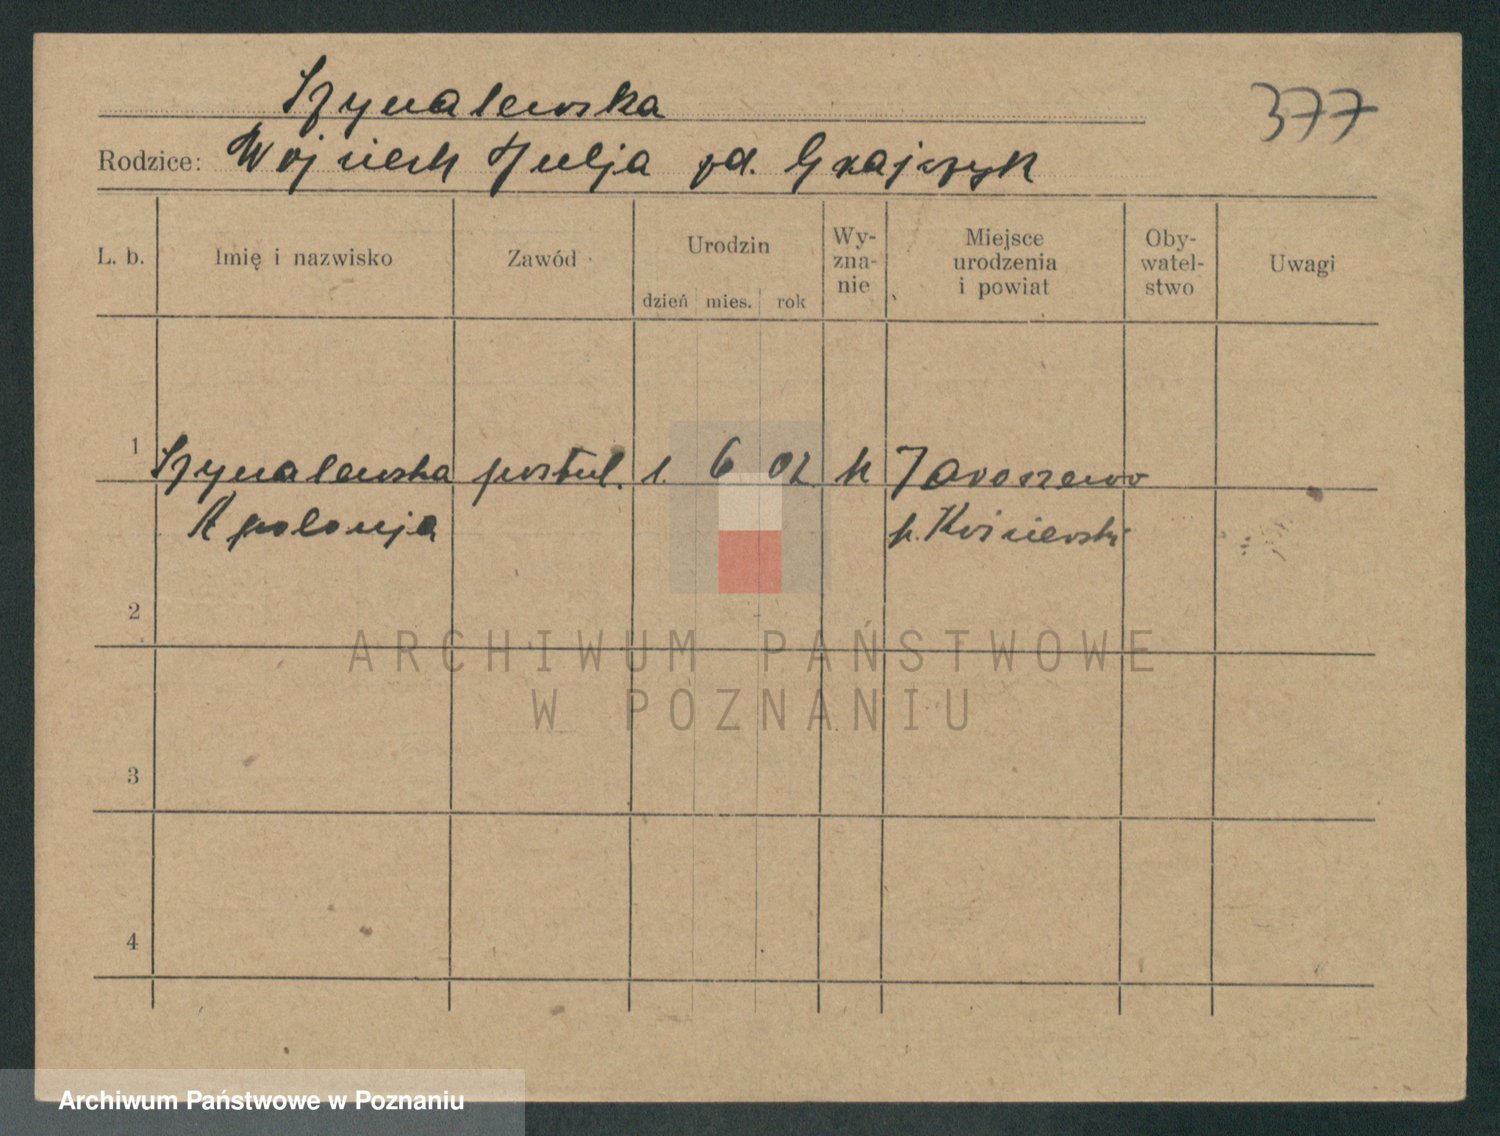 Szymalewska
377
Rodzice: Wojciech Julja zd. Grajczyk
L. b. Imię i nazwisko Zawód Urodzin Wy-zna-nie Miejsce urodzenia i powiat Oby-watel-stwo Uwagi
dzień mies. rok
1 Szymalewska postul. 1. 6 02 k Jaroszewo
Apolonja p. Kościerski
2
3
4
ARCHIWUM PAŃSTWOWE
W POZNANIU
Archiwum Państwowe w Poznaniu